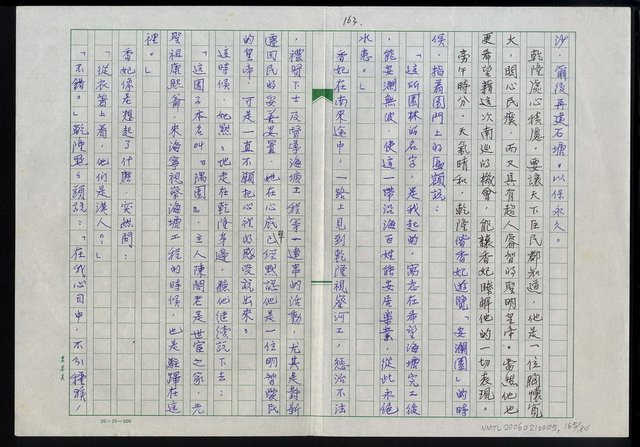 163.
沙，爾後再建石塘。以保永久。」
乾隆處心積慮，要讓天下臣民都知道，他是一位胸懷寬
大，關心民瘼，而又具有超人睿智的聖明皇帝。當然他也
更希望藉這次南巡的機會，能讓香妃瞭解他的一切表現。
旁午時分，天氣晴和，乾隆偕香妃遊覽「安瀾園」的時
候，指着園門上的匾額說：
「這所園林的名字，是我起的，寓意在希望海塘完工後
能安瀾無波，使這一帶沿海百姓能安居樂業，從此永絕
水患。」
香妃在南來途中，一路上見到乾隆視察河工，懲治不法
，禮賢下士及督導海塘工程等一連串的活動，尤其是對新
疆回民的妥善安置，她在心底已經默認他是一位明智愛民
的皇帝，可是一直不願把心裡的感受說出來。
這時候，她默默地走在乾隆身邊，聽他繼續說下去：
「這園子本名叫『隅園』，主人陳閣老是世宦之家，先
聖祖康熙爺，來海寧視察海塘工程的時候，也是駐蹕在這
裡。」
香妃像是想起了什麼，突然問：
「從衣著上看，他們是漢人？」
「不錯。」乾隆點點頭說：「在我心目中，不分種族，
20×25=500
NMTL20060210005, 165/801